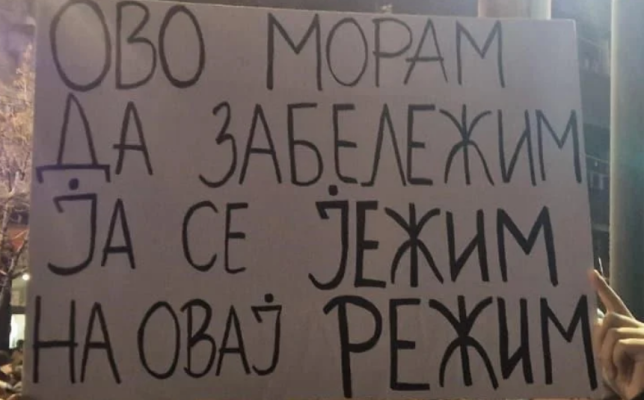 ОВО МОРАМ
ДА ЗАБЕЛЕЖИМ
ЈА СЕ ЈЕЖИМ
НА ОВАЈ РЕЖИМ